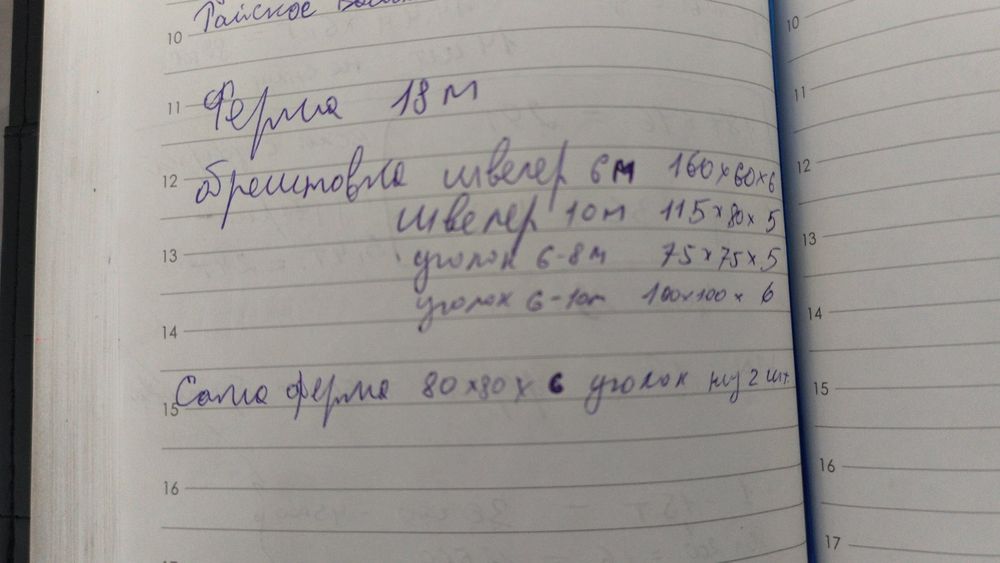 Райское
10
Ферма 18 м
11
обрештовка швелер 6м 160×60×6
12
швелер 10м 115×80×5
уголок 6-8м 75×75×5
13
уголок 6-10м 100×100×6
14
Сама ферма 80×80×6 уголок низ 2 шт.
15
16
10
11
12
13
14
15
16
17